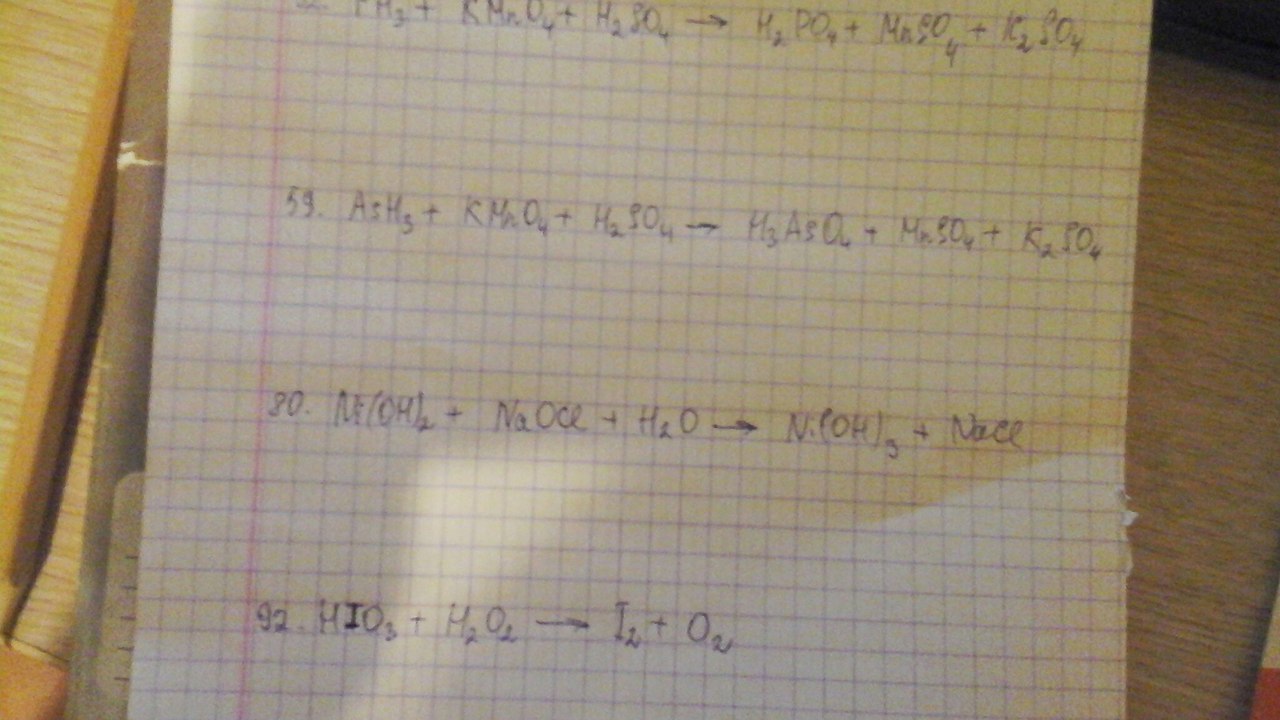 PH₃ + KMnO₄ + H₂SO₄ → H₂PO₄ + MnSO₄ + K₂SO₄
59. AsH₃ + KMnO₄ + H₂SO₄ → H₃AsO₄ + MnSO₄ + K₂SO₄
80. Ni(OH)₂ + NaOCl + H₂O → Ni(OH)₃ + NaCl
92. HIO₃ + H₂O₂ → I₂ + O₂